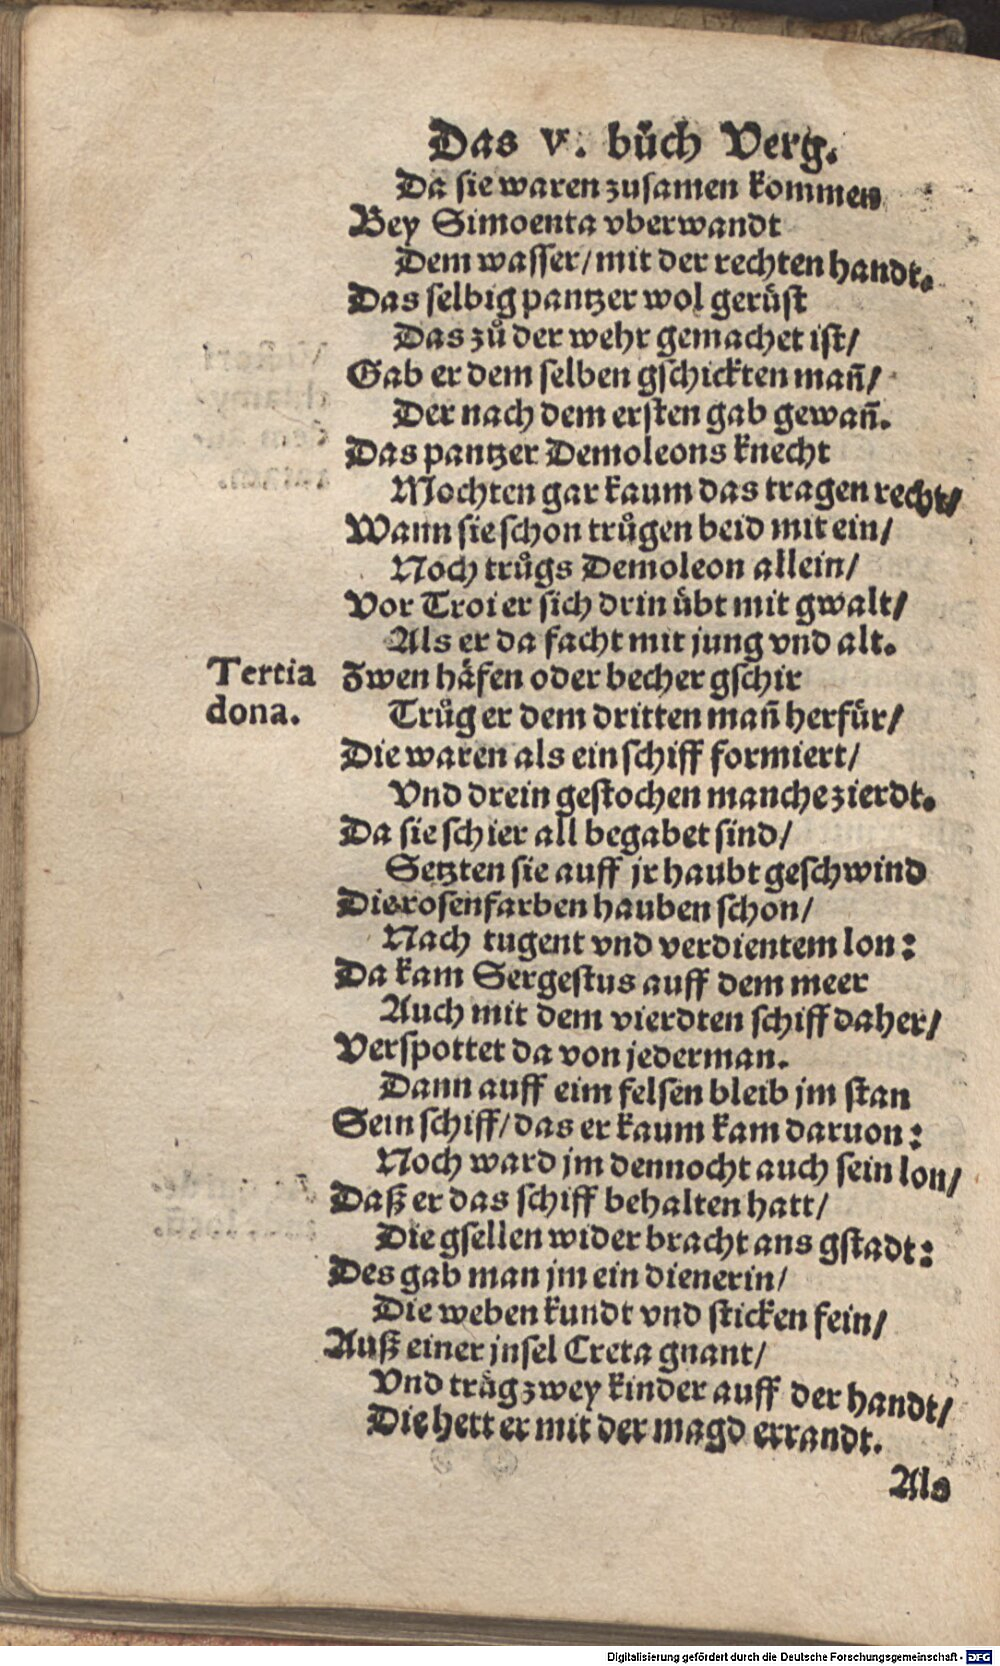 Das v. bůch Verg.
Da sie waren zusamen kommen
Bey Simoenta vberwandt
Dem wasser/ mit der rechten handt.
Das selbig pantzer wol gerüst
Das zů der wehr gemachet ist/
Gab er dem selben gschickten mañ/
Der nach dem ersten gab gewañ.
Das pantzer Demoleons knecht
Mochten gar kaum das tragen recht/
Wann sie schon trůgen beid mit ein/
Noch trůgs Demoleon allein/
Vor Troi er sich drin übt mit gwalt/
Als er da facht mit jung vnd alt.
Tertia dona.
Zwen häfen oder becher gschir
Trůg er dem dritten mañ herfür/
Die waren als ein schiff formiert/
Vnd drein gestochen manche zierdt.
Da sie schier all begabet sind/
Setzten sie auff jr haubt geschwind
Die rosenfarben hauben schon/
Nach tugent vnd verdientem lon:
Da kam Sergestus auff dem meer
Auch mit dem vierdten schiff daher/
Verspottet da von jederman.
Dann auff eim felsen bleib jm stan
Sein schiff/ das er kaum kam daruon:
Noch ward jm dennocht auch sein lon/
Daß er das schiff behalten hatt/
Die gsellen wider bracht ans gstadt:
Des gab man jm ein dienerin/
Die weben kundt vnd sticken fein/
Auß einer jnsel Creta gnant/
Vnd trůg zwey kinder auff der handt/
Die hett er mit der magd errandt.
Als
Digitalisierung gefördert durch die Deutsche Forschungsgemeinschaft - DFG